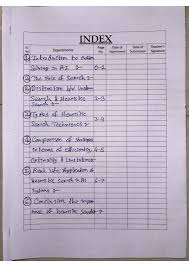 INDEX
S. No. Experiments Page No. Date of Experiment Date of Submission Teacher's Signature
① Introduction to Problem
Solving in A.I. 0-2
② The Role of Search 2-
③ Distinction b/w Uniform
Search & Heuristic 2-3
Search 2-
④ Types of Heuristic
Search Techniques 2- 3-4
Comparison of
in terms of efficiency, 4-5
Optimality & Limitations
Real life Application of
Heuristic search in AI 6-7
Systems 2-
Conclusion
of heuristic Search 7-8